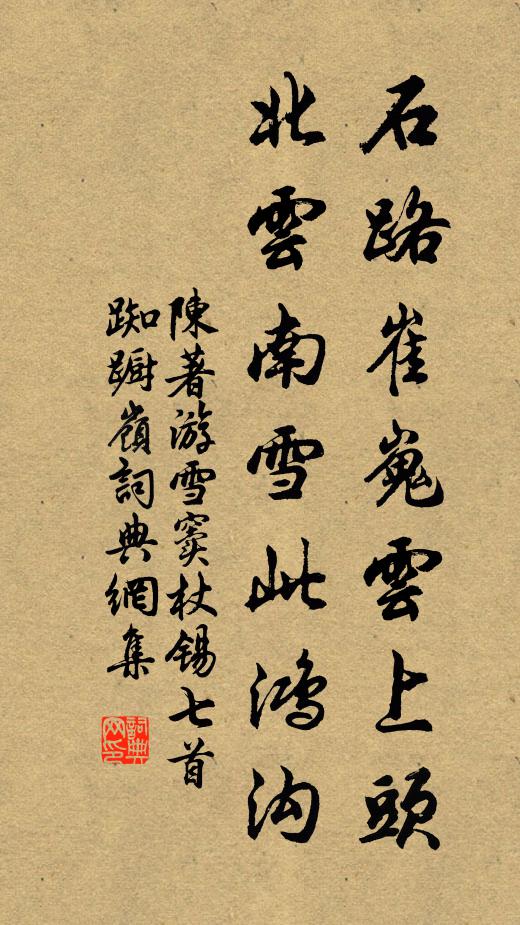 石路崔嵬雲上頭
北雲南雪此鴻沟
陳著游雪竇杖锡七首
踟蹰嶺詞典網集
詞典
网印